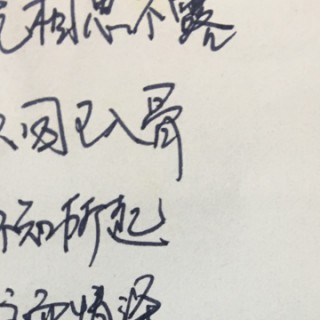 相思不露
只因已入骨
不知所起
而情深